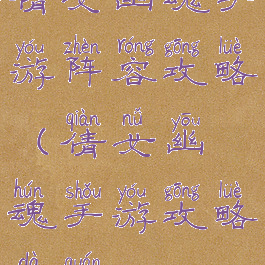 yóu zhèn róng gōng lüè
游阵容攻略
qiàn nǚ yōu
(倩女幽
hún shǒu yóu gōng lüè
魂手游攻略
dà quán